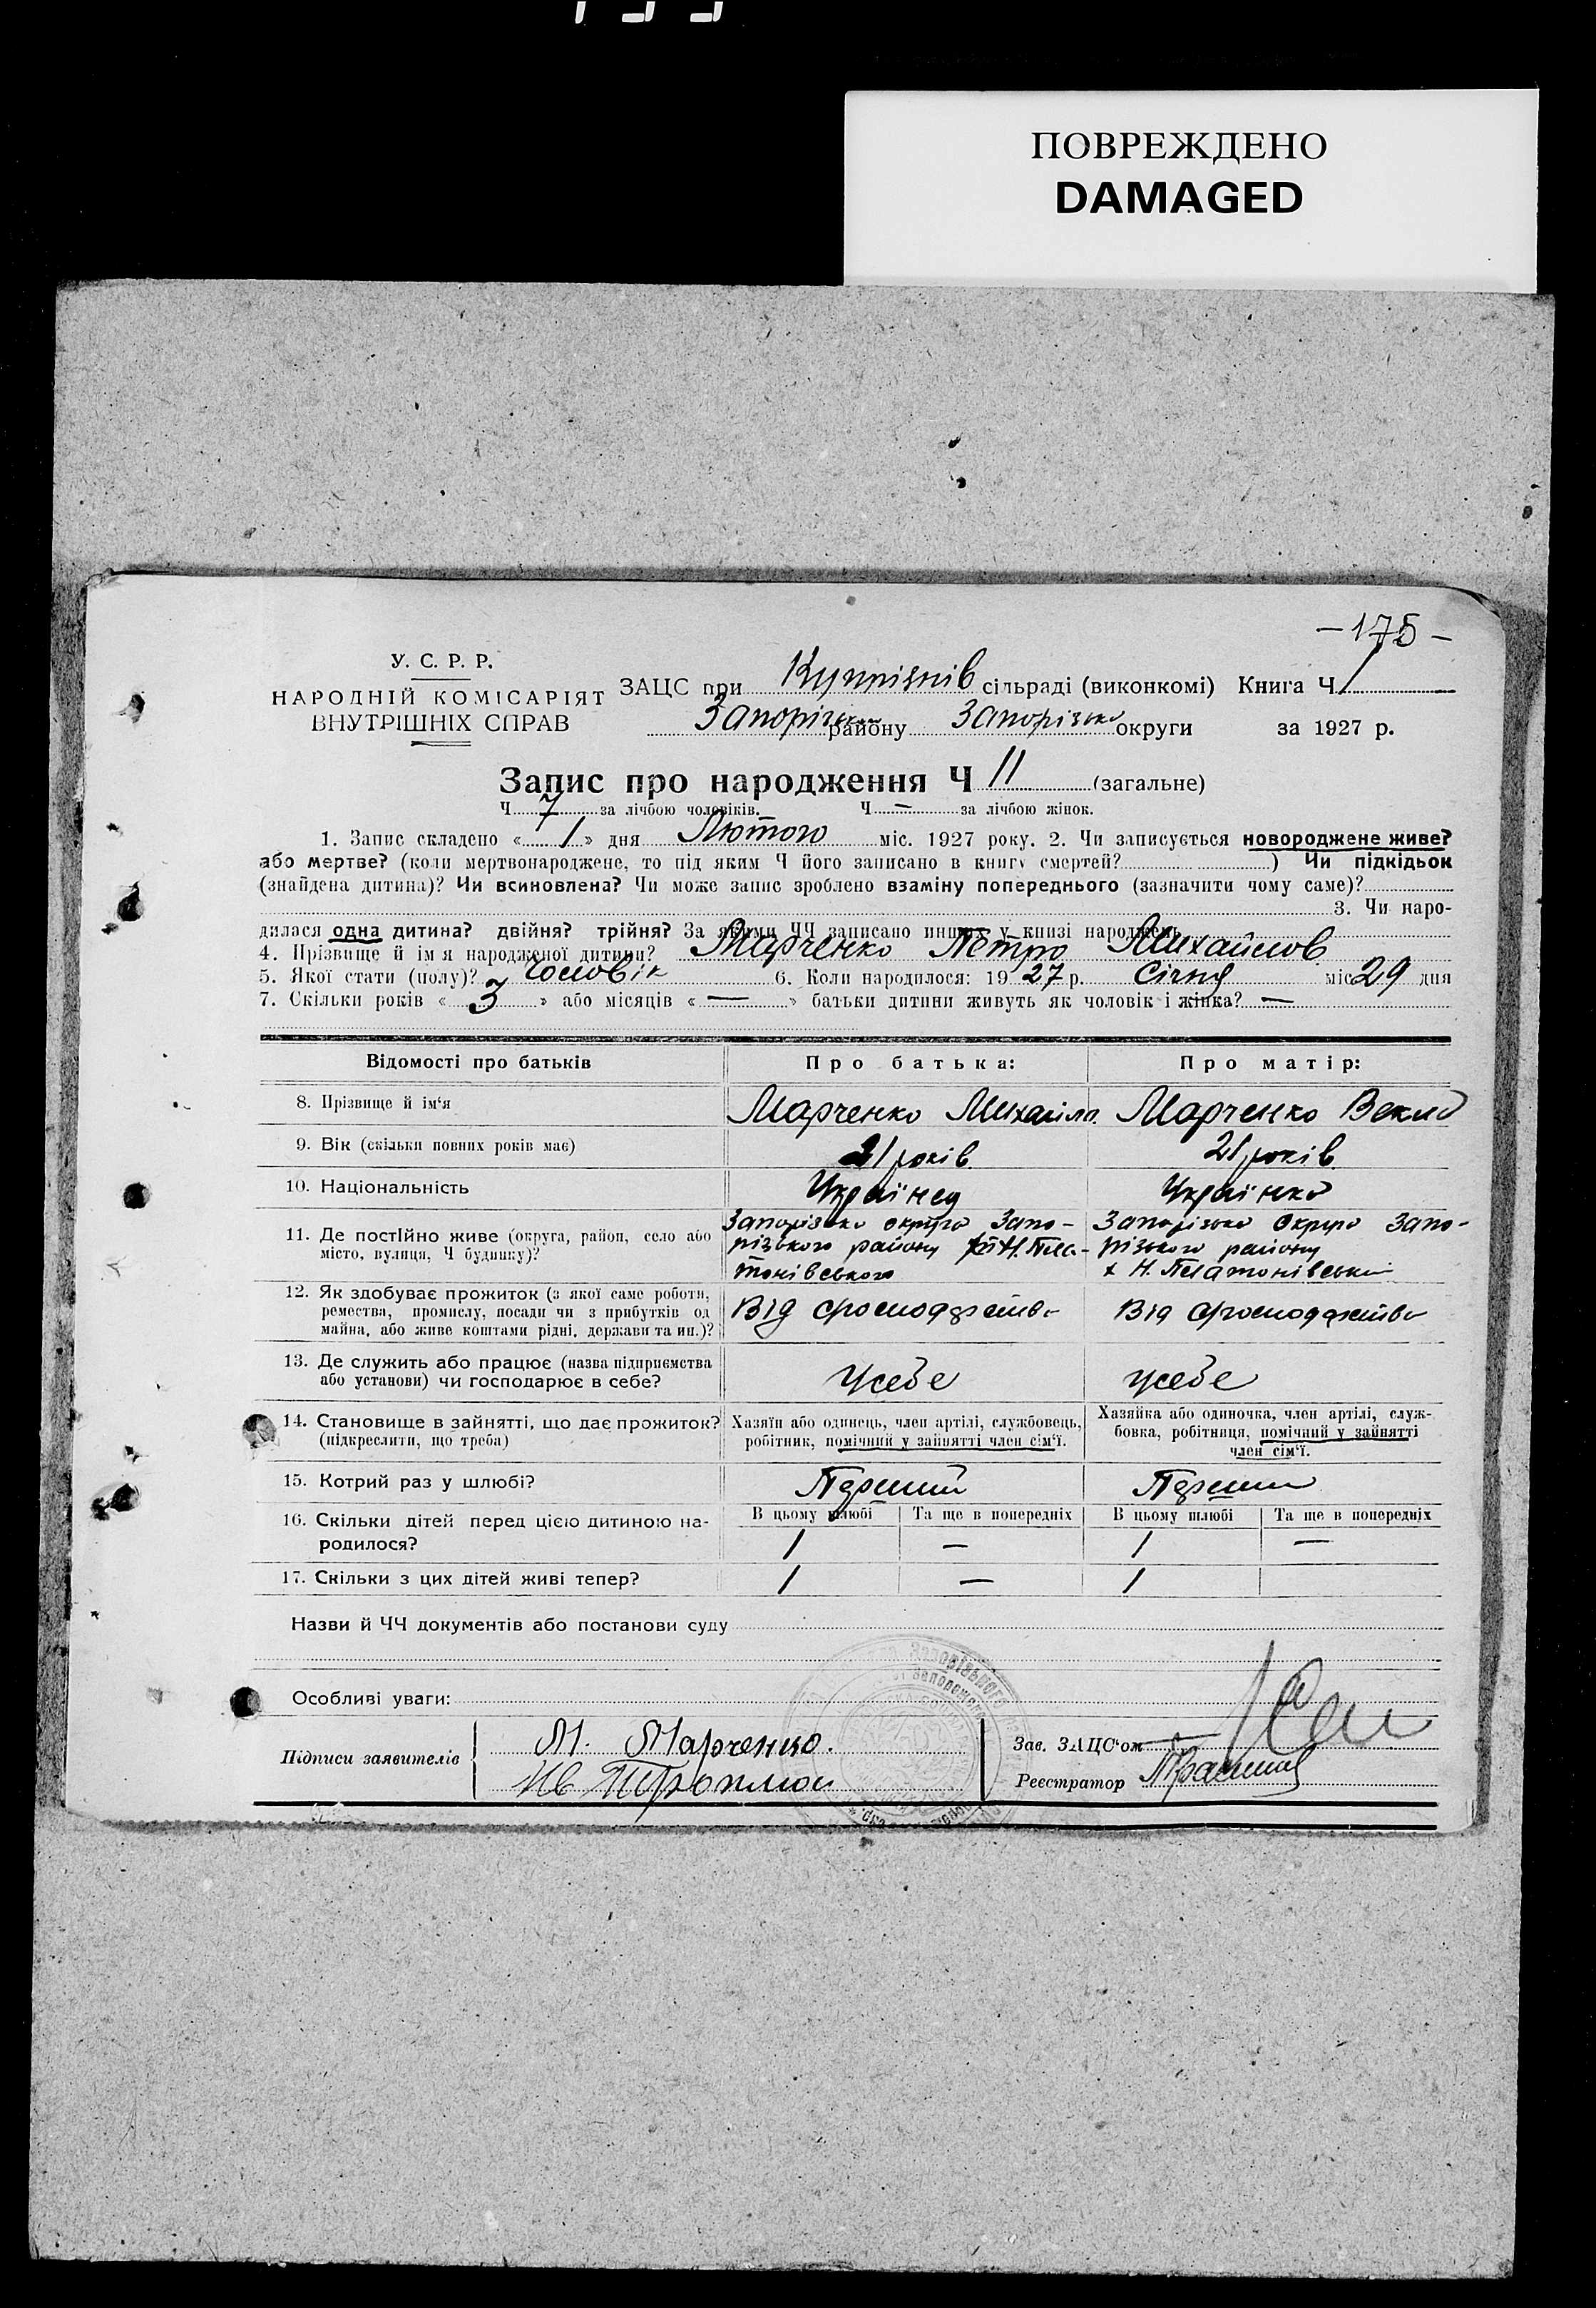 ПОВРЕЖДЕНО
DAMAGED
— 175 —
У. С. Р. Р.
НАРОДНІЙ КОМІСАРІЯТ
ВНУТРІШНІХ СПРАВ
ЗАЦС при сільраді (виконкомі) Книга Ч 1
Запорізьк району Запорізько округи за 1927 р.
Запис про народження Ч 11 (загальне)
Ч 7 за лічбою чоловіків. Ч — за лічбою жінок.
1. Запис складено « 1 » дня Лютого міс. 1927 року. 2. Чи записується новороджене живе?
або мертве? (коли мертвонароджене, то під яким Ч його записано в книгу смертей? ) Чи підкідьок
(знайдена дитина)? Чи всиновлена? Чи може запис зроблено взаміну попереднього (зазначити чому саме)?
3. Чи наро-
дилася одна дитина? двійня? трійня? За якими ЧЧ записано инших у книзі народжень
4. Прізвище й ім'я народженої дитини? Марченко Петро Михайлов
5. Якої стати (полу)? Чоловік 6. Коли народилося: 1927 р. Січня міс 29 дня
7. Скільки років « 3 » або місяців « — » батьки дитини живуть як чоловік і жінка? —
Відомості про батьків Про батька: Про матір:
8. Прізвище й ім'я Марченко Михайло Марченко Векла
9. Вік (скільки повних років має) 21 років 21 років
10. Національність Українец Українка
11. Де постійно живе (округа, район, село або місто, вулиця, Ч будинку)? Запорізька округа Запо-
різького району Н. Пла-
тонівського
Запорізька округа Запо-
різького району
х Н. Платонівський
12. Як здобуває прожиток (з якої саме роботи,
ремества, промислу, посади чи з прибутків од
майна, або живе коштами рідні, держави та ин.)? Від Від
13. Де служить або працює (назва підприємства
або установи) чи господарює в себе? усебе усебе
14. Становище в зайнятті, що дає прожиток?
(підкреслити, що треба)
Хазяїн або одинець, член артілі, службовець,
робітник, помічний у зайнятті член сім'ї.
Хазяйка або одиночка, член артілі, служ-
бовка, робітниця, помічний у зайнятті
член сім'ї.
15. Котрий раз у шлюбі? Перший Перший
В цьому шлюбі Та ще в попередніх В цьому шлюбі Та ще в попередніх
16. Скільки дітей перед цією дитиною на-
родилося? 1 — 1 —
17. Скільки з цих дітей живі тепер? 1 — 1
Назви й ЧЧ документів або постанови суду
Особливі уваги:
Підписи заявителів М. Марченко.
Зав. ЗАЦС'ом
Реєстратор